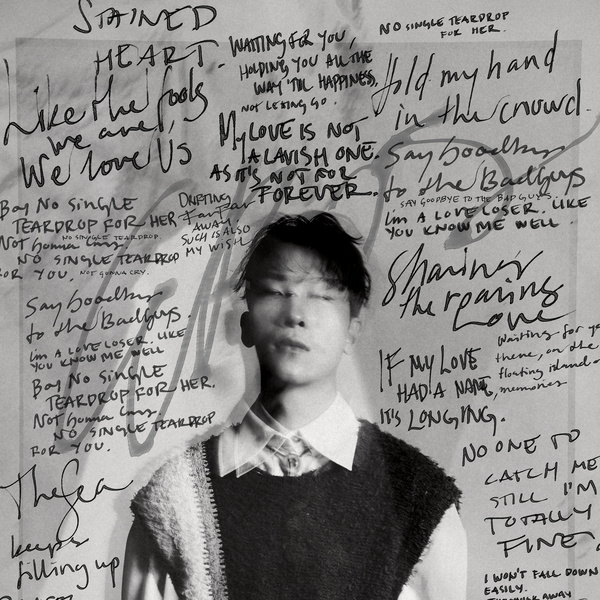 STAINED
HEART
Like the fools
we are,
We love Us
WAITING FOR YOU,
HOLDING YOU ALL THE
WAY 'TIL HAPPINESS.
NOT LETING GO.
MY LOVE IS NOT
A LAVISH ONE.
AS IT'S NOT FOR
FOREVER.
NO SINGLE TEARDROP
FOR HER.
Hold my hand
in the crowd.
Say Goodbye
to the BadGuys
SAY GOODBYE TO THE BAD GUYS
I'm A LOVE LOSER. LIKE
YOU KNOW ME WELL
Boy No SINGLE
TEARDROP FOR HER
NO SINGLE TEARDROP
Not Gonna Cry
NO SINGLE TEARDROP
FOR YOU. NOT GONNA CRY.
DRIFTING
Far Far
AWAY.
SUCH IS ALSO
MY WISH
Say Goodbye
to the BadGuys.
I'm A LOVE LOSER. LIKE
YOU KNOW ME WELL
Boy No SINGLE
TEARDROP FOR HER.
Not Gonna Cry
NO SINGLE TEARDROP
FOR YOU.
Sharing
the roaring
Love
IF MY LOVE
HAD A NAME,
IT'S LONGING.
Waiting for yo
there, on the
floating island
memories
NO ONE TO
CATCH ME
STILL I'M
TOTALLY
FINE
I WON'T FALL DOWN
EASILY.
AWAY
The Sea
keeps
filling up